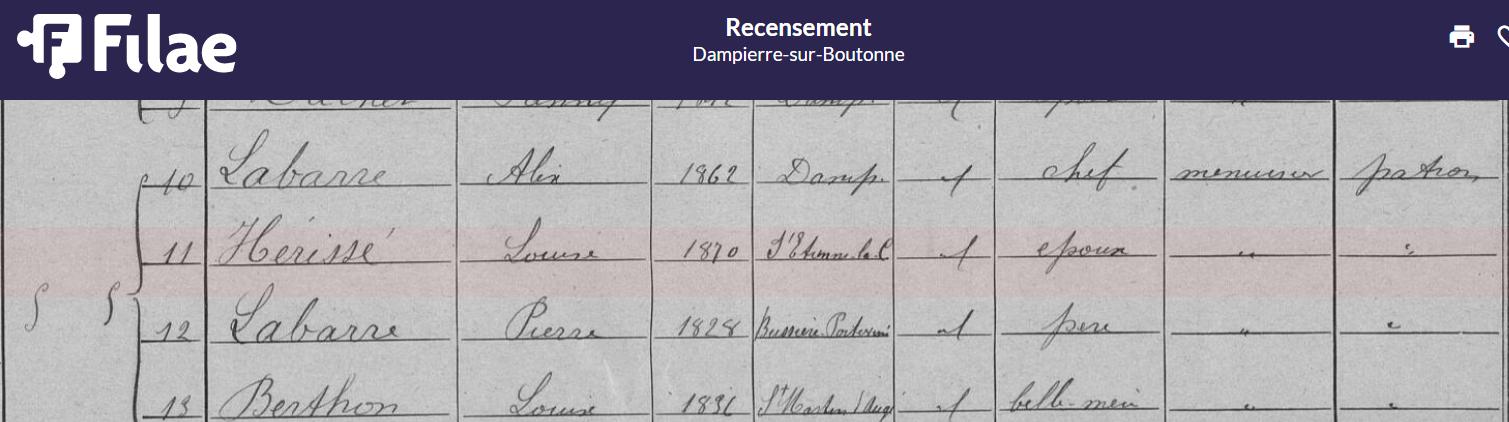 Filae
Recensement
Dampierre-sur-Boutonne
10 Labarre Alix 1862 Damp. f chef menuisier patron
11 Hérissé Louise 1870 St Etienne-la-C f epoux " "
12 Labarre Pierre 1828 f pere " "
5 5 13 Berthon Louise St Martin d'Aug f belle-mère " "